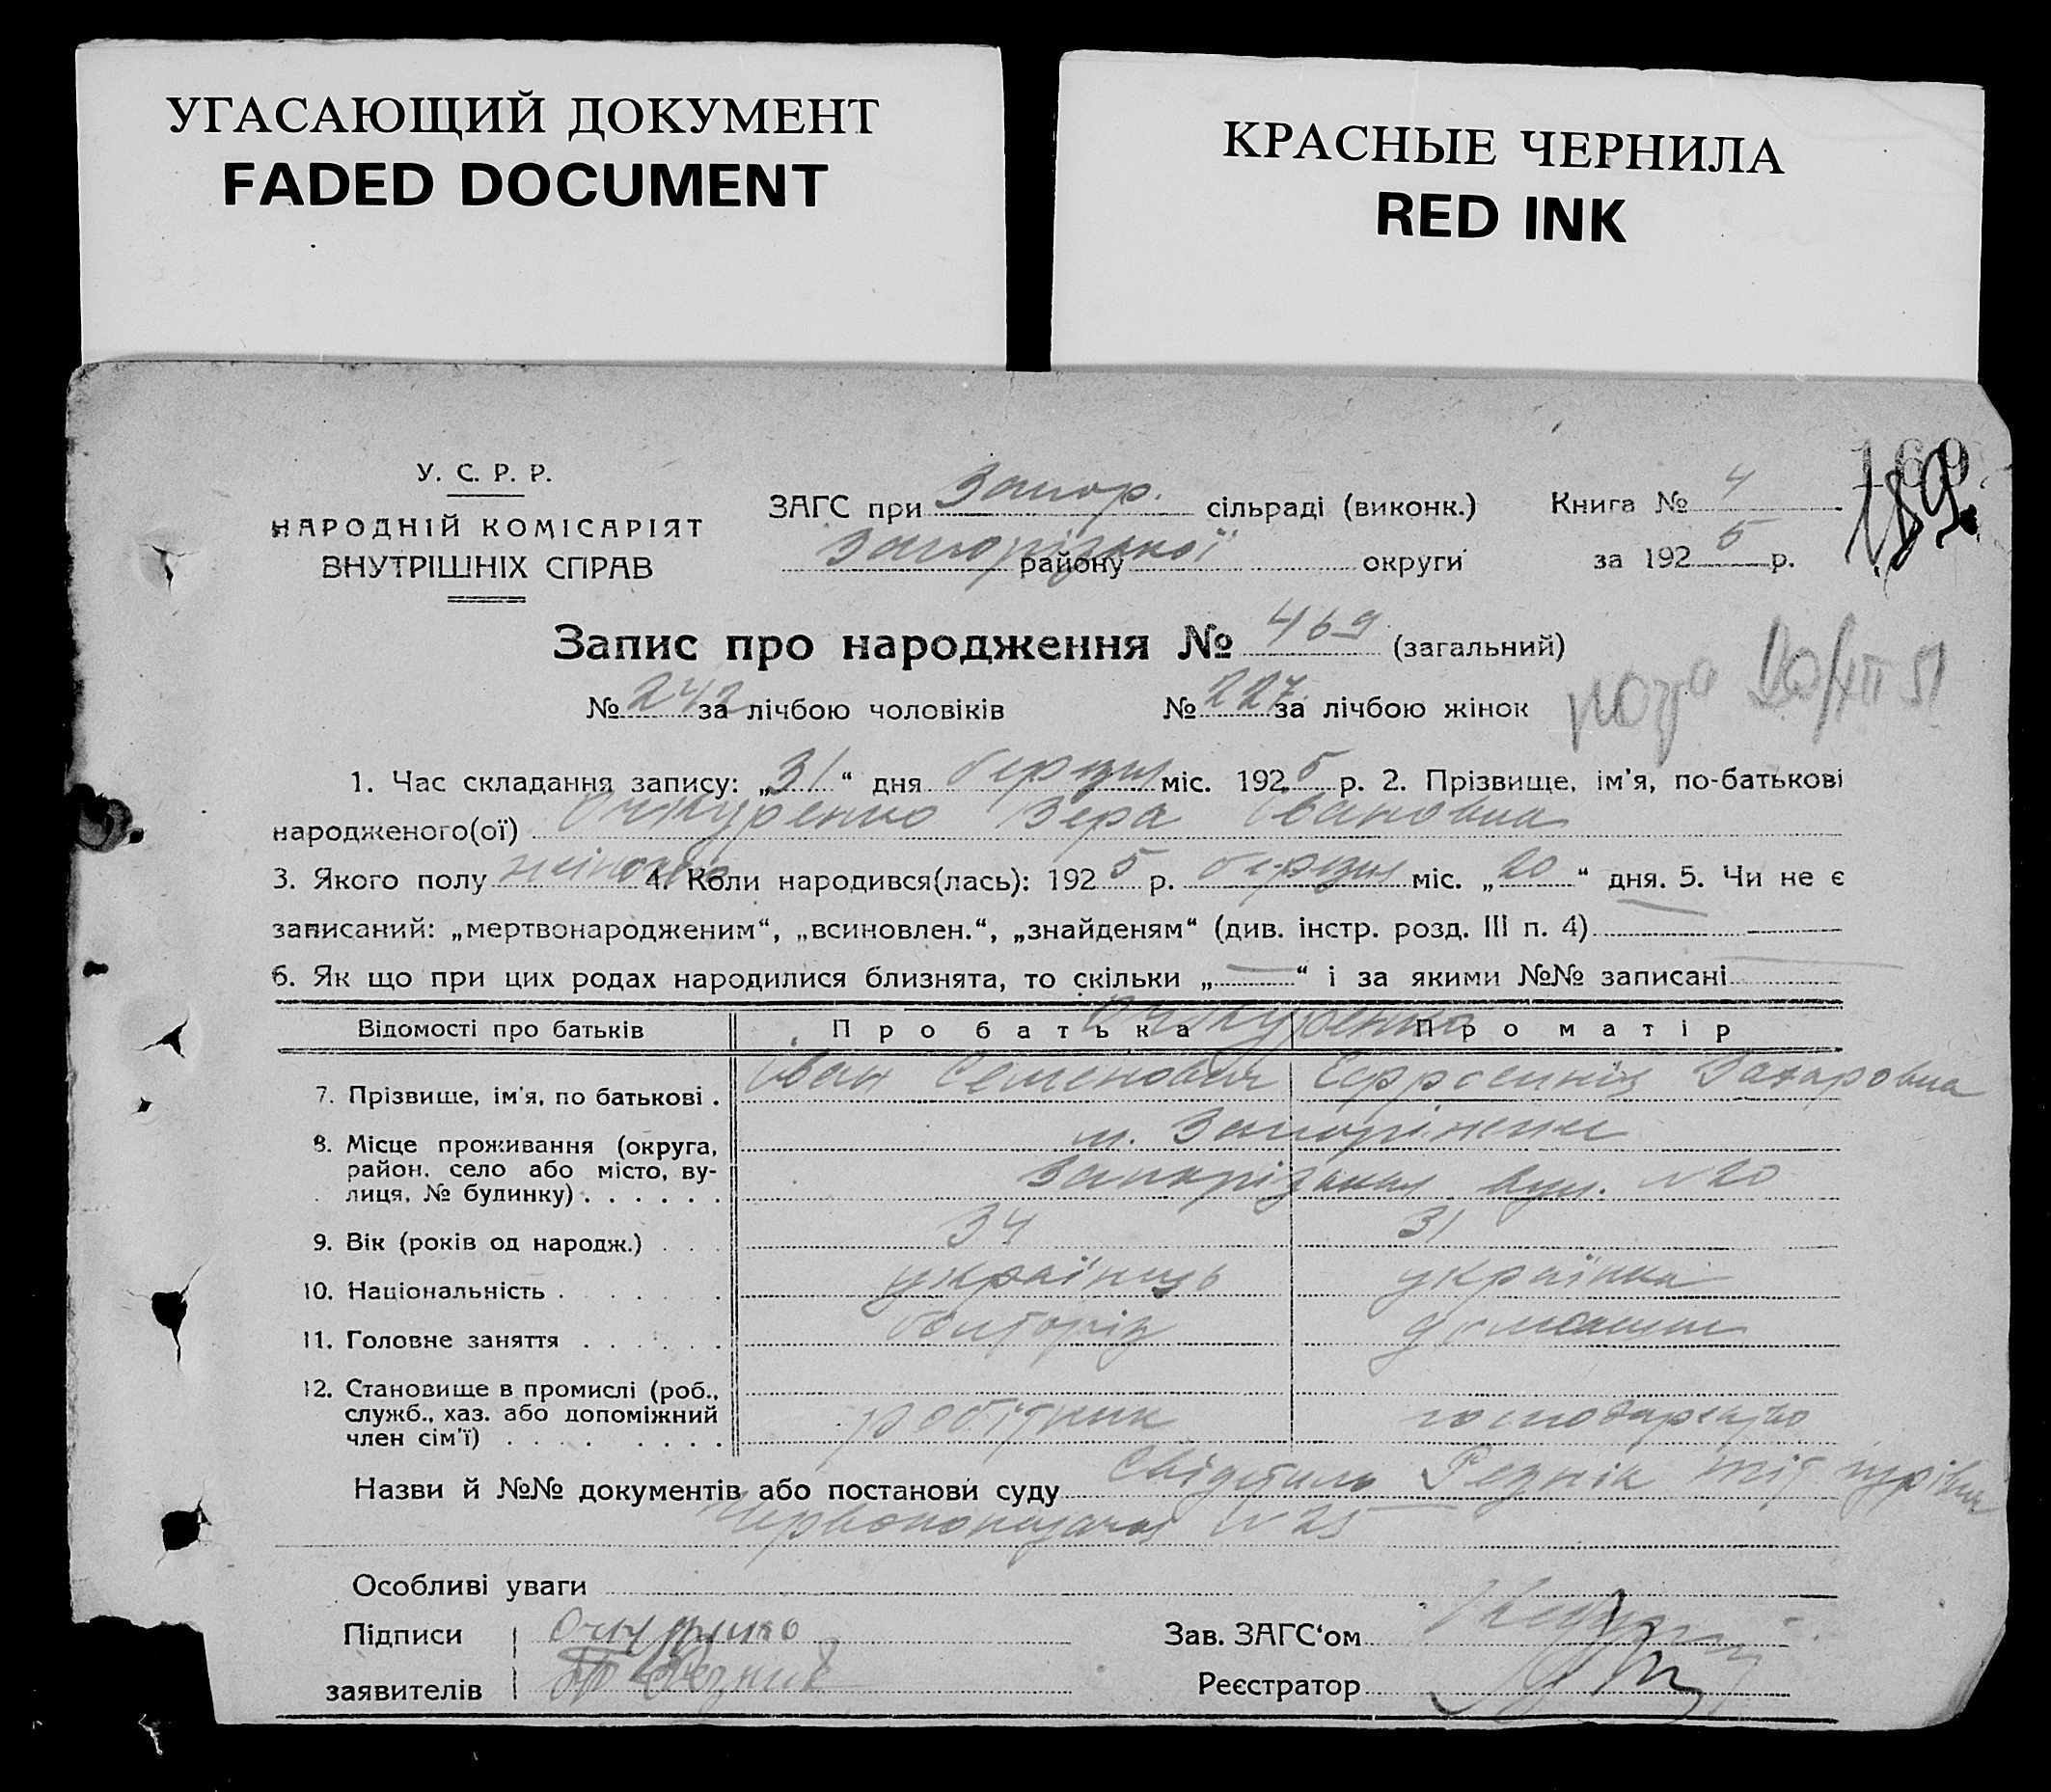 УГАСАЮЩИЙ ДОКУМЕНТ
FADED DOCUMENT
КРАСНЫЕ ЧЕРНИЛА
RED INK
У. С. Р. Р.
НАРОДНІЙ КОМІСАРІЯТ
ВНУТРІШНІХ СПРАВ
ЗАГС при Запор. сільраді (виконк.) Книга № 4
Запорізької району округи за 1925 р.
169
189
Запис про народження № 469 (загальний)
№ 242 за лічбою чоловіків № 227 за лічбою жінок
1. Час складання запису: „31“ дня березня міс. 1925 р. 2. Прізвище, ім'я, по-батькові
народженого(ої) Очкуренко Вера Івановна
3. Якого полу жіночого 4. Коли народився(лась): 1925 р. березня міс. „20“ дня. 5. Чи не є
записаний: „мертвонародженим“, „всиновлен.“, „знайденям“ (див. інстр. розд. III п. 4)
6. Як що при цих родах народилися близнята, то скільки „—“ і за якими №№ записані
Відомості про батьків Про батька Про матір
Очкуренко
7. Прізвище, ім'я, по батькові . Іван Семенович Ефросинія Захаровна
8. Місце проживання (округа, м. Запоріжжя
район, село або місто, ву-
лиця, № будинку) . . . . . . Запорізькая вул. № 20
9. Вік (років од народж.) . . . 34 31
10. Національність . . . . . . українець українка
11. Головне заняття . . . . . . домашнє
12. Становище в промислі (роб.,
служб., хаз. або допоміжний робітник господарство
член сім'ї) . . . . . . . .
Назви й №№ документів або постанови суду Резнік
№ 25
Особливі уваги
Підписи Очкуренко Зав. ЗАГС‘ом
заявителів Резник Реєстратор